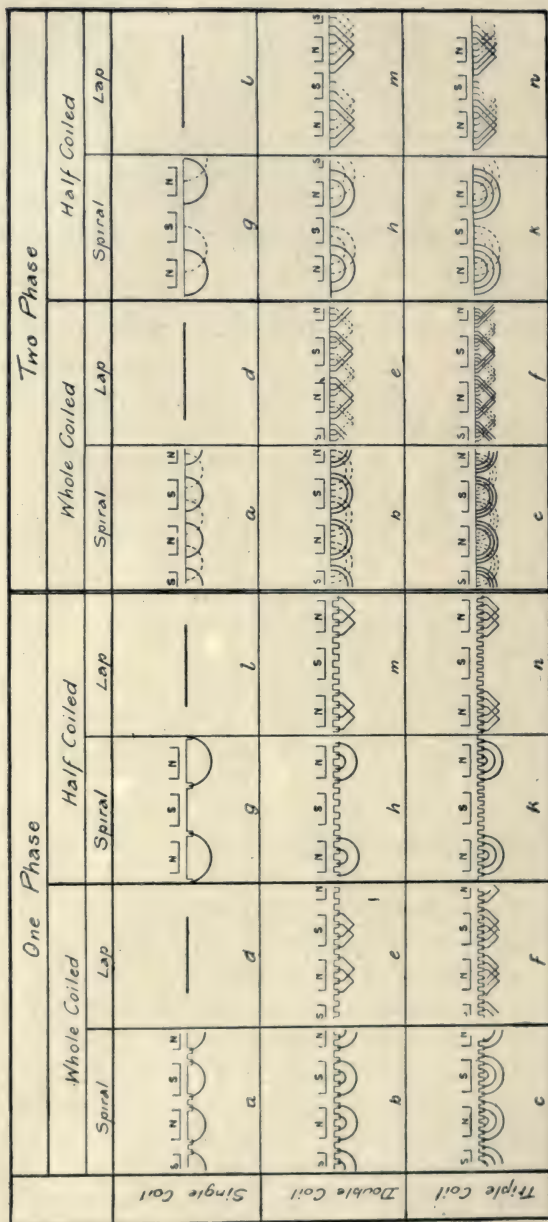 One Phase Two Phase
Whole Coiled Half Coiled Whole Coiled Half Coiled
Spiral Lap Spiral Lap Spiral Lap Spiral Lap
Single Coil
S N S N N S N S N S N N S N
a d g l a d g l
Double Coil
S N S N S N S N N S N N S N S N S N S N S N N S N S N S N S
b e h m b e h m
Triple Coil
S N S N S N S N N S N N S N S N S N S N S N N S N N S N S
c f k n c f k n